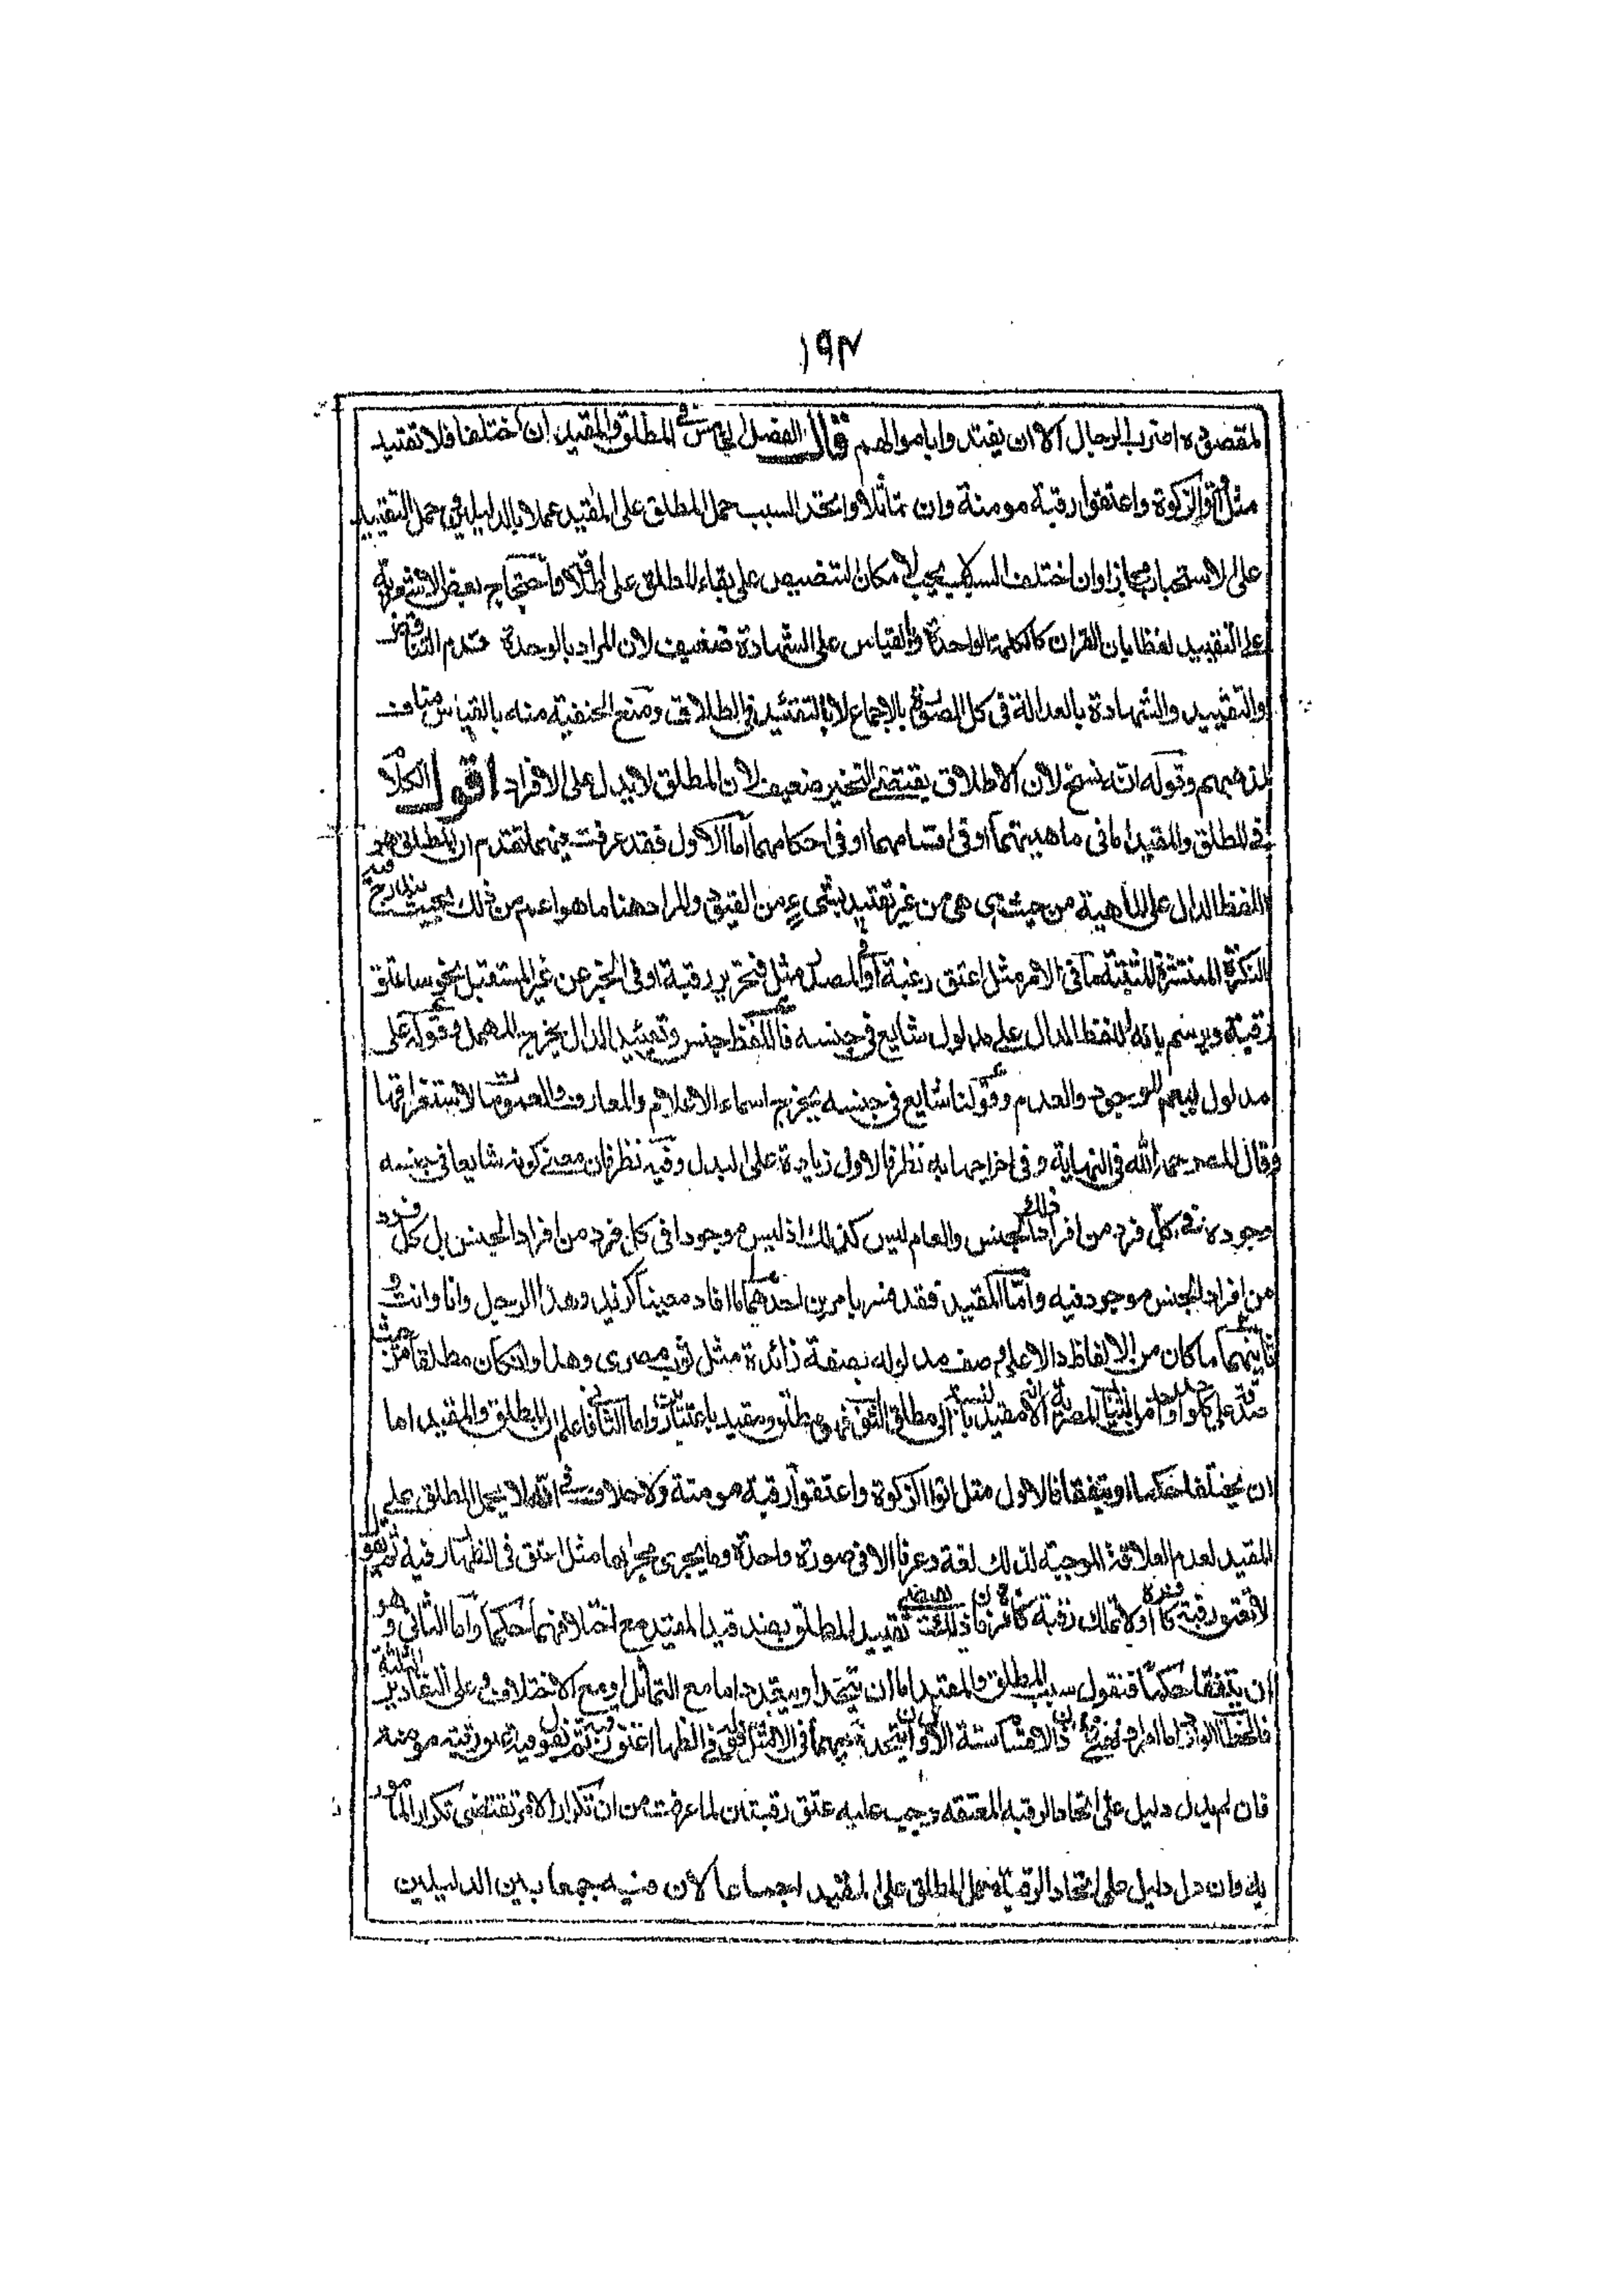 ١٩٣
لمقصوده اضرب الرجال الا ان يفتدوا باموالهم قال الفصل الخامس في المطلق والمقيد ان اختلفا فلا تقييد
مثل اتوا الزكوة واعتقوا رقبة مومنة وان تماثلا واتحد السبب حمل المطلق على المقيد عملا بالدليلين حمل التقييد
على الاستحباب مجاز وان اختلف السبب لا يجب لامكان التنصيص على بقاء المطلق على اطلاقه واحتجاج بعض الاشعرية
على التقييد لفظا بان القران كالكلمة الواحدة والقياس على الشهادة ضعيف لان المراد بالوحدة عدم التناقض
والتقييد والشهادة بالعدالة في كل الصور بالاجماع لا بالتقييد في الطلاق ومنع الحنفية منه بالقياس مناف
لمذهبهم وقوله انه نسخ لان الاطلاق يقتضي التخير ضعيف لان المطلق لا يدل على الافراد اقول الكلام
في المطلق والمقيد اما في ماهيتهما او في اقسامهما او في احكامهما اما الاول فقد عرفت فيما تقدم ان المطلق هو
اللفظ الدال على الماهية من حيث هي هي من غير تقييد بشيء من القيود والمراد هنا ما هو اعم من ذلك بحيث يندرج فيه
النكرة المنتشرة المثبتة اما في الامر مثل اعتق رقبة او المصدر مثل فتحرير رقبة او في الخبر عن غير المستقبل نحو ساعتق
رقبة ويرسم بانه اللفظ الدال على مدلول شايع في جنسه فاللفظ جنس وتقييد الدال يخرج المهمل وقوله على
مدلول ليعم الموجود والعدم وقولنا شايع في جنسه يخرج اسماء الاعلام والمعارف والعمومات لاستغراقها
وقال المص رحمه الله في النهاية وفي اخراجها به نظر فالاولى زيادة على البدل وفيه نظر فان معنى كونه شايعا في جنسه
وجوده في كل فرد من افراد ذلك الجنس والعام ليس كذلك اذ ليس موجودا في كل فرد من افراد الجنس بل كل فرد
من افراد الجنس موجود فيه واما المقيد فقد فسر بامرين احدهما ما افاد معينا كزيد وهذا الرجل وانا وانت و
ثانيهما ما كان من الالفاظ دالا على وصف مدلوله بصفة زائدة مثل ثوب مصري وهذا وان كان مطلقا من حيث
صدقه على كل واحد من الثياب المصرية الا انه مقيد بالنسبة الى مطلق الثوب فهو مطلق ومقيد باعتبارين واما الثاني فاعلم ان المطلق والمقيد اما
ان يختلفا حكما او يتفقا فالاول مثل اتوا الزكوة واعتقوا رقبة مومنة ولا خلاف في انه لا يحمل المطلق على
المقيد لعدم العلاقة الموجبة لذلك لغة وعرفا الا في صورة واحدة وما يجري مجراها مثل اعتق في الظهار رقبة ثم يقول
لا تعتق رقبة كافرة او لا تملك رقبة كافرة فان ذلك يقتضي تقييد المطلق بضد قيد المقيد مع اختلافهما حكما واما الثاني وهو
ان يتفقا حكما فنقول سبب المطلق والمقيد اما ان يتحد او يتعدد اما مع التماثل او مع الاختلاف وعلى التقادير الثلثة
في الظهار اعتق رقبة ثم يقول فيه اعتق رقبة مومنة
فان لم يدل دليل على اتحاد الرقبة المعتقه وجب عليه عتق رقبتان لما عرفت من ان تكرار الامر تقتضي تكرار المامور
به وان دل دليل على اتحاد الرقبة حمل المطلق على المقيد اجماعا لان فيه جمعا بين الدليلين